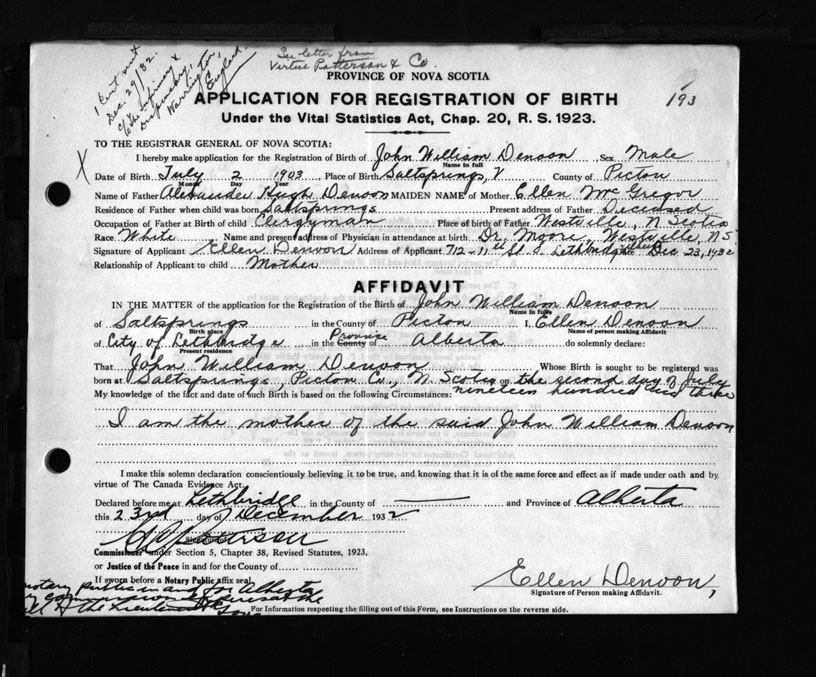 1 Cert sent
Dec. 29/32.
c/o the Infirmary &
Dispensary,
Warrington,
England.
See letter from
Virtue Patterson & Co.
PROVINCE OF NOVA SCOTIA
193
APPLICATION FOR REGISTRATION OF BIRTH
Under the Vital Statistics Act, Chap. 20, R. S. 1923.
TO THE REGISTRAR GENERAL OF NOVA SCOTIA:
X
I hereby make application for the Registration of Birth of John William Denoon Sex Male
Name in full
Date of Birth July 2 1903 Place of Birth Saltsprings, County of Pictou
Month Day Year
Name of Father Alexander Hugh Denoon MAIDEN NAME of Mother Ellen McGregor
Residence of Father when child was born Saltsprings Present address of Father Deceased
Occupation of Father at Birth of child Clergyman Place of birth of Father Westville, N Scotia
Race White Name and present address of Physician in attendance at birth Dr. Moore, Westville, N S
Signature of Applicant Ellen Denoon Address of Applicant 712-11th St. S. Lethbridge Alberta Date Dec 23, 1932
Relationship of Applicant to child Mother
AFFIDAVIT
IN THE MATTER of the application for the Registration of the Birth of John William Denoon
Name in full
of Saltsprings in the County of Pictou I, Ellen Denoon
Birth place Name of person making Affidavit
of City of Lethbridge in the County of Province Alberta do solemnly declare:
Present residence
That John William Denoon Whose Birth is sought to be registered was
born at Saltsprings, Pictou Co., N. Scotia on the second day of July
My knowledge of the fact and date of such Birth is based on the following Circumstances: nineteen hundred and three
I am the mother of the said John William Denoon
I make this solemn declaration conscientiously believing it to be true, and knowing that it is of the same force and effect as if made under oath and by
virtue of The Canada Evidence Act.
Declared before me at Lethbridge in the County of and Province of Alberta
this 23rd day of December 1932
Commissioner under Section 5, Chapter 38, Revised Statutes, 1923,
or Justice of the Peace in and for the County of
If sworn before a Notary Public affix seal.
Ellen Denoon
Signature of Person making Affidavit.
notary public in and for Alberta
my commission expires at the
will of the Lieutenant
For Information respecting the filling out of this Form, see Instructions on the reverse side.